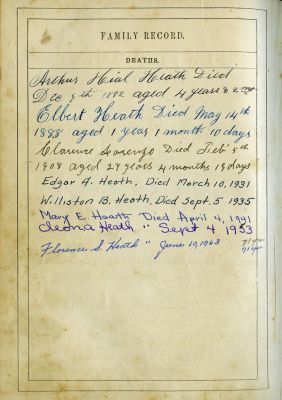 FAMILY RECORD.
DEATHS.
Arthur Hial Heath Died
Dec 9th 1882 aged 4 years 8
Elbert Heath Died May 14th
1888 aged 1 year 1 month 10 days
Clarence Lorenzo Died Feb' 9th
1908 aged 27 years 4 months 19 days
Edgar A. Heath, Died March 10, 1931
Williston B. Heath, Died Sept. 5 1935
Mary E. Heath Died April 4, 1941
Cleona Heath " Sept 4 1953
Florence S. Heath " June 19, 1963